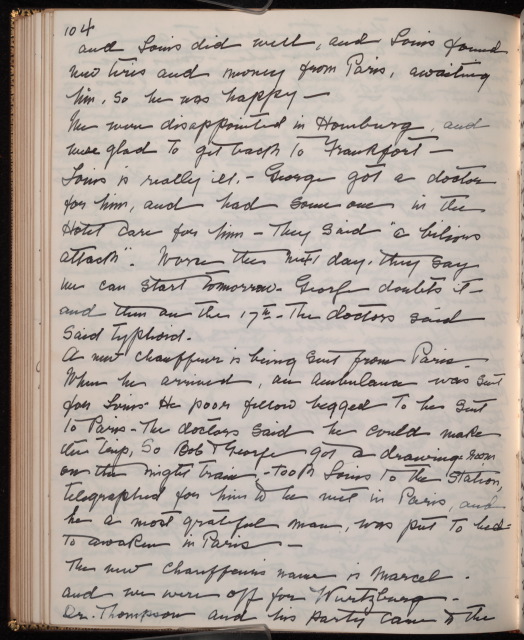 104
and Louis did well, and Louis found
new tires and money from Paris, awaiting
him, so he was happy —
We were disappointed in Homburg, and
were glad to get back to Frankfort —
Louis is really ill. - George got a doctor
for him, and had some one in the
Hotel care for him - They said "a bilious
attack". Worse the next day. they say
we can start tomorrow. George doubts it -
and then on the 17th - The doctors said
said typhoid.
A new chauffeur is being sent from Paris.
When he arrived, an ambulance was sent
for Louis. He poor fellow begged to be sent
to Paris - The doctors said he could make
the trip, So Bob & George got a drawing room
on the night train, - took Louis to the Station,
telegraphed for him to be met in Paris, and
he a most grateful man, was put to bed -
to awaken in Paris —
The new chauffeur's name is Marcel.
and we were off for Wurtzburg -
Dr. Thompson and his party came to the